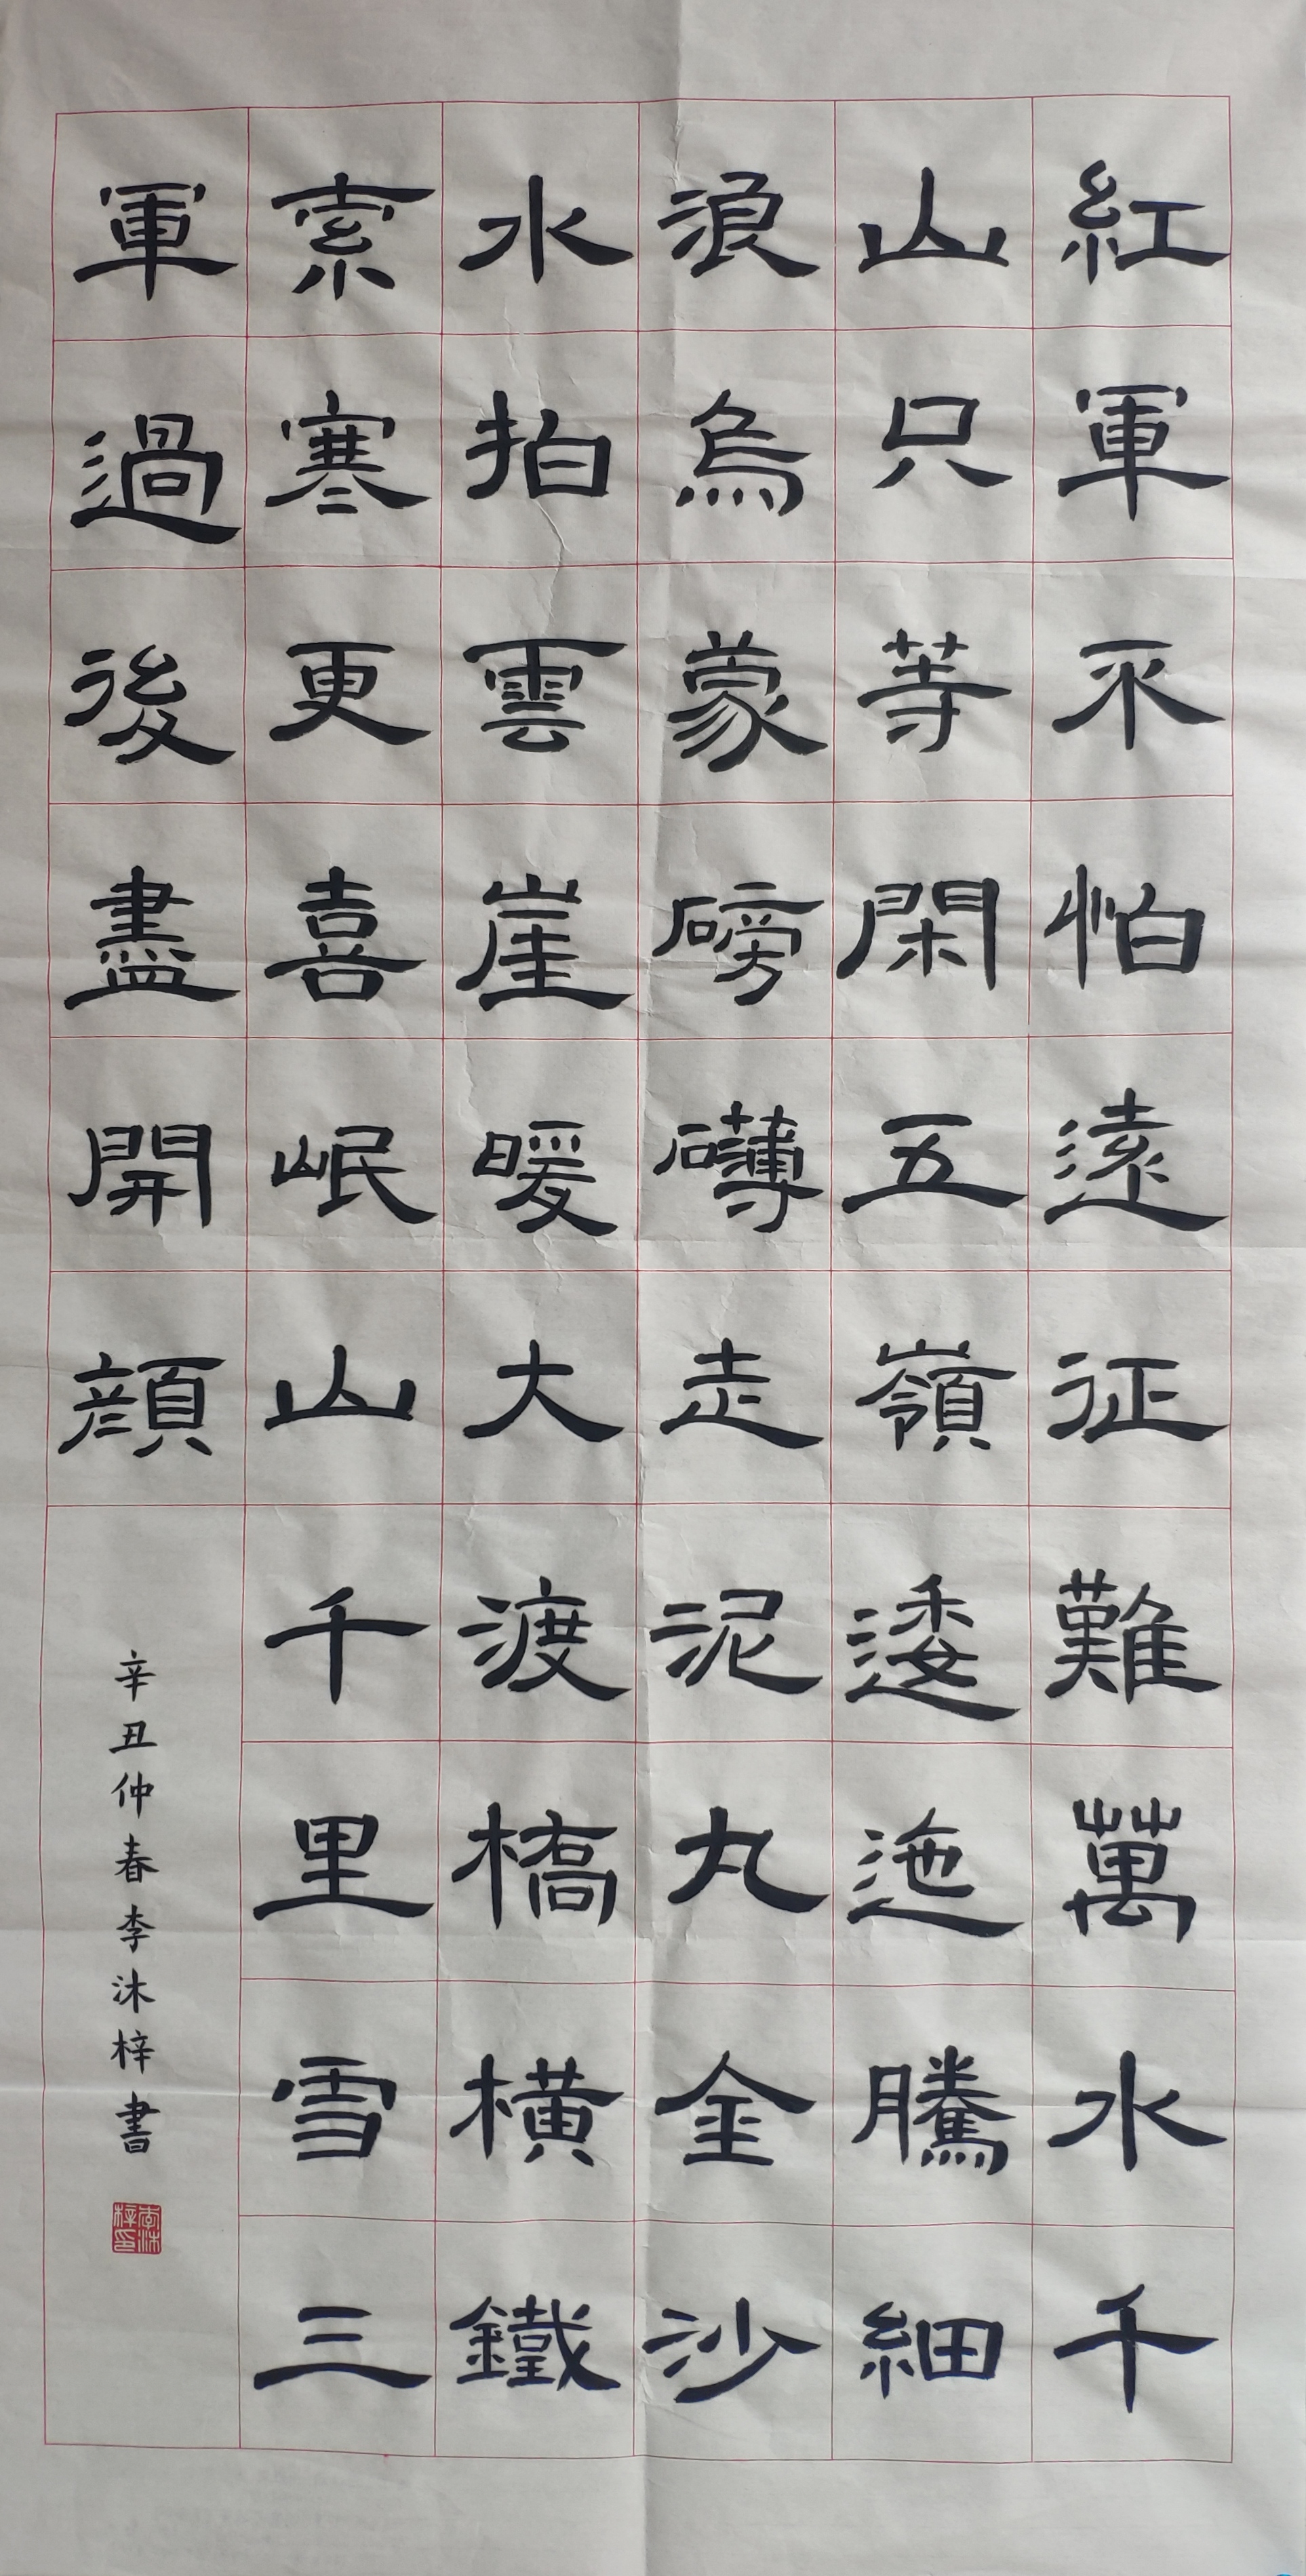 紅軍不怕遠征難萬水千
山只等閑五嶺逶迤騰細
浪烏蒙磅礴走泥丸金沙
水拍雲崖暖大渡橋橫鐵
索寒更喜岷山千里雪三
軍過後盡開顔
辛丑仲春李沐梓書
李沐梓印